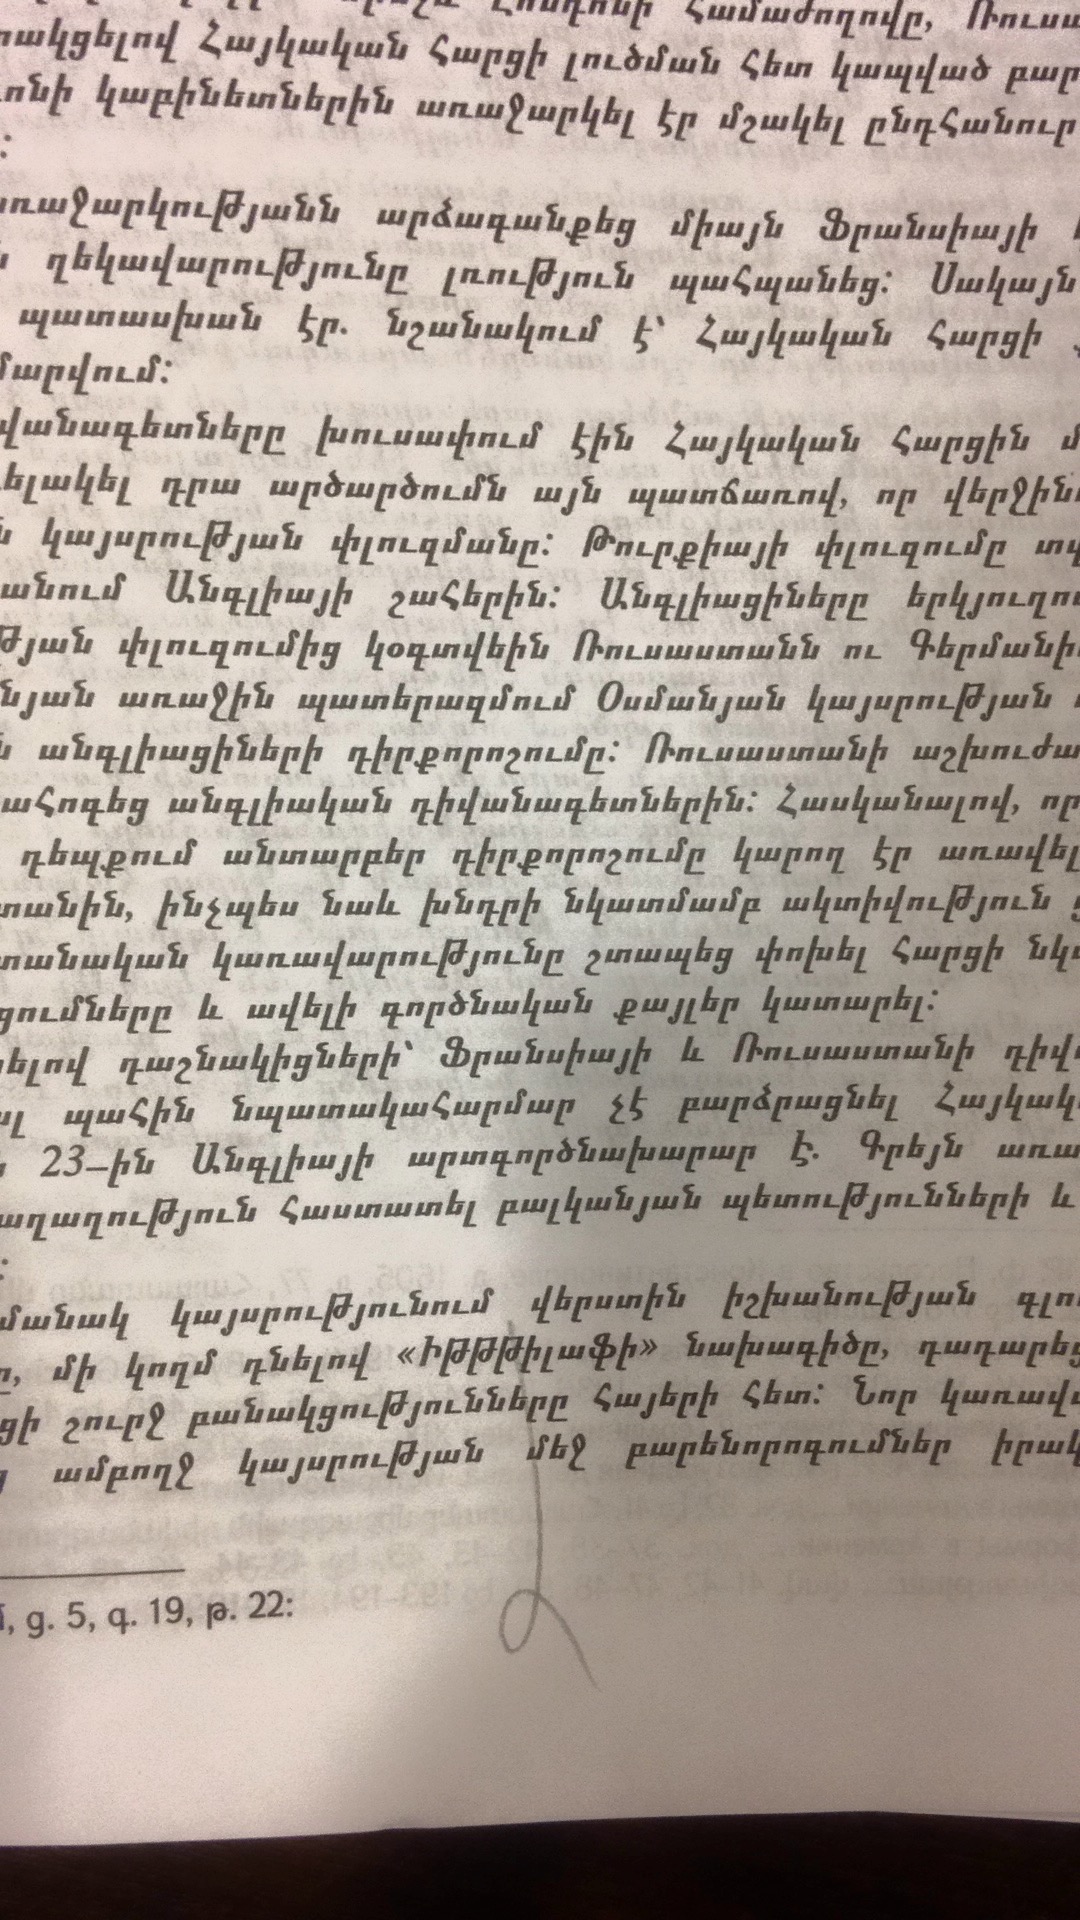 Լոնդոնի Համաժողովը, Ռուսա
րակցելով Հայկական Հարցի լուծման հետ կապված բար
ոնի կաբինետներին առաջարկել էր մշակել ընդհանուր
:
առաջարկությանն արձագանքեց միայն Ֆրանսիայի
ն ղեկավարությունը լռություն պահպանեց: Սակայն
պատասխան էր. նշանակում է՝ Հայկական Հարցի
մարվում:
վանագետները խուսափում էին Հայկական Հարցին մ
ելակել դրա արծարծումն այն պատճառով, որ վերջին
ն կայսրության փլուզմանը: Թուրքիայի փլուզումը տվ
անում Անգլիայի շահերին: Անգլիացիները երկյուղու
թյան փլուզումից կօգտվեին Ռուսաստանն ու Գերմանի
նյան առաջին պատերազմում Օսմանյան կայսրության
ն անգլիացիների դիրքորոշումը: Ռուսաստանի աշխուժա
ահոգեց անգլիական դիվանագետներին: Հասկանալով, որ
դեպքում անտարբեր դիրքորոշումը կարող էր առավել
տանին, ինչպես նաև խնդրի նկատմամբ ակտիվություն ց
տանական կառավարությունը շտապեց փոխել Հարցի նկ
ցումները և ավելի գործնական քայլեր կատարել:
ելով դաշնակիցների՝ Ֆրանսիայի և Ռուսաստանի դիվ
ալ պահին նպատակահարմար չէ բարձրացնել Հայկակ
23–ին Անգլիայի արտգործնախարար Է. Գրեյն առա
աղաղություն հաստատել բալկանյան պետությունների և
:
մանակ կայսրությունում վերստին իշխանության գլու
ը, մի կողմ դնելով «Իթթիլաֆի» նախագիծը, դադարեց
ցի շուրջ բանակցությունները հայերի հետ: Նոր կառավ
ամբողջ կայսրության մեջ բարենորոգումներ իրակ
, ց. 5, գ. 19, թ. 22: